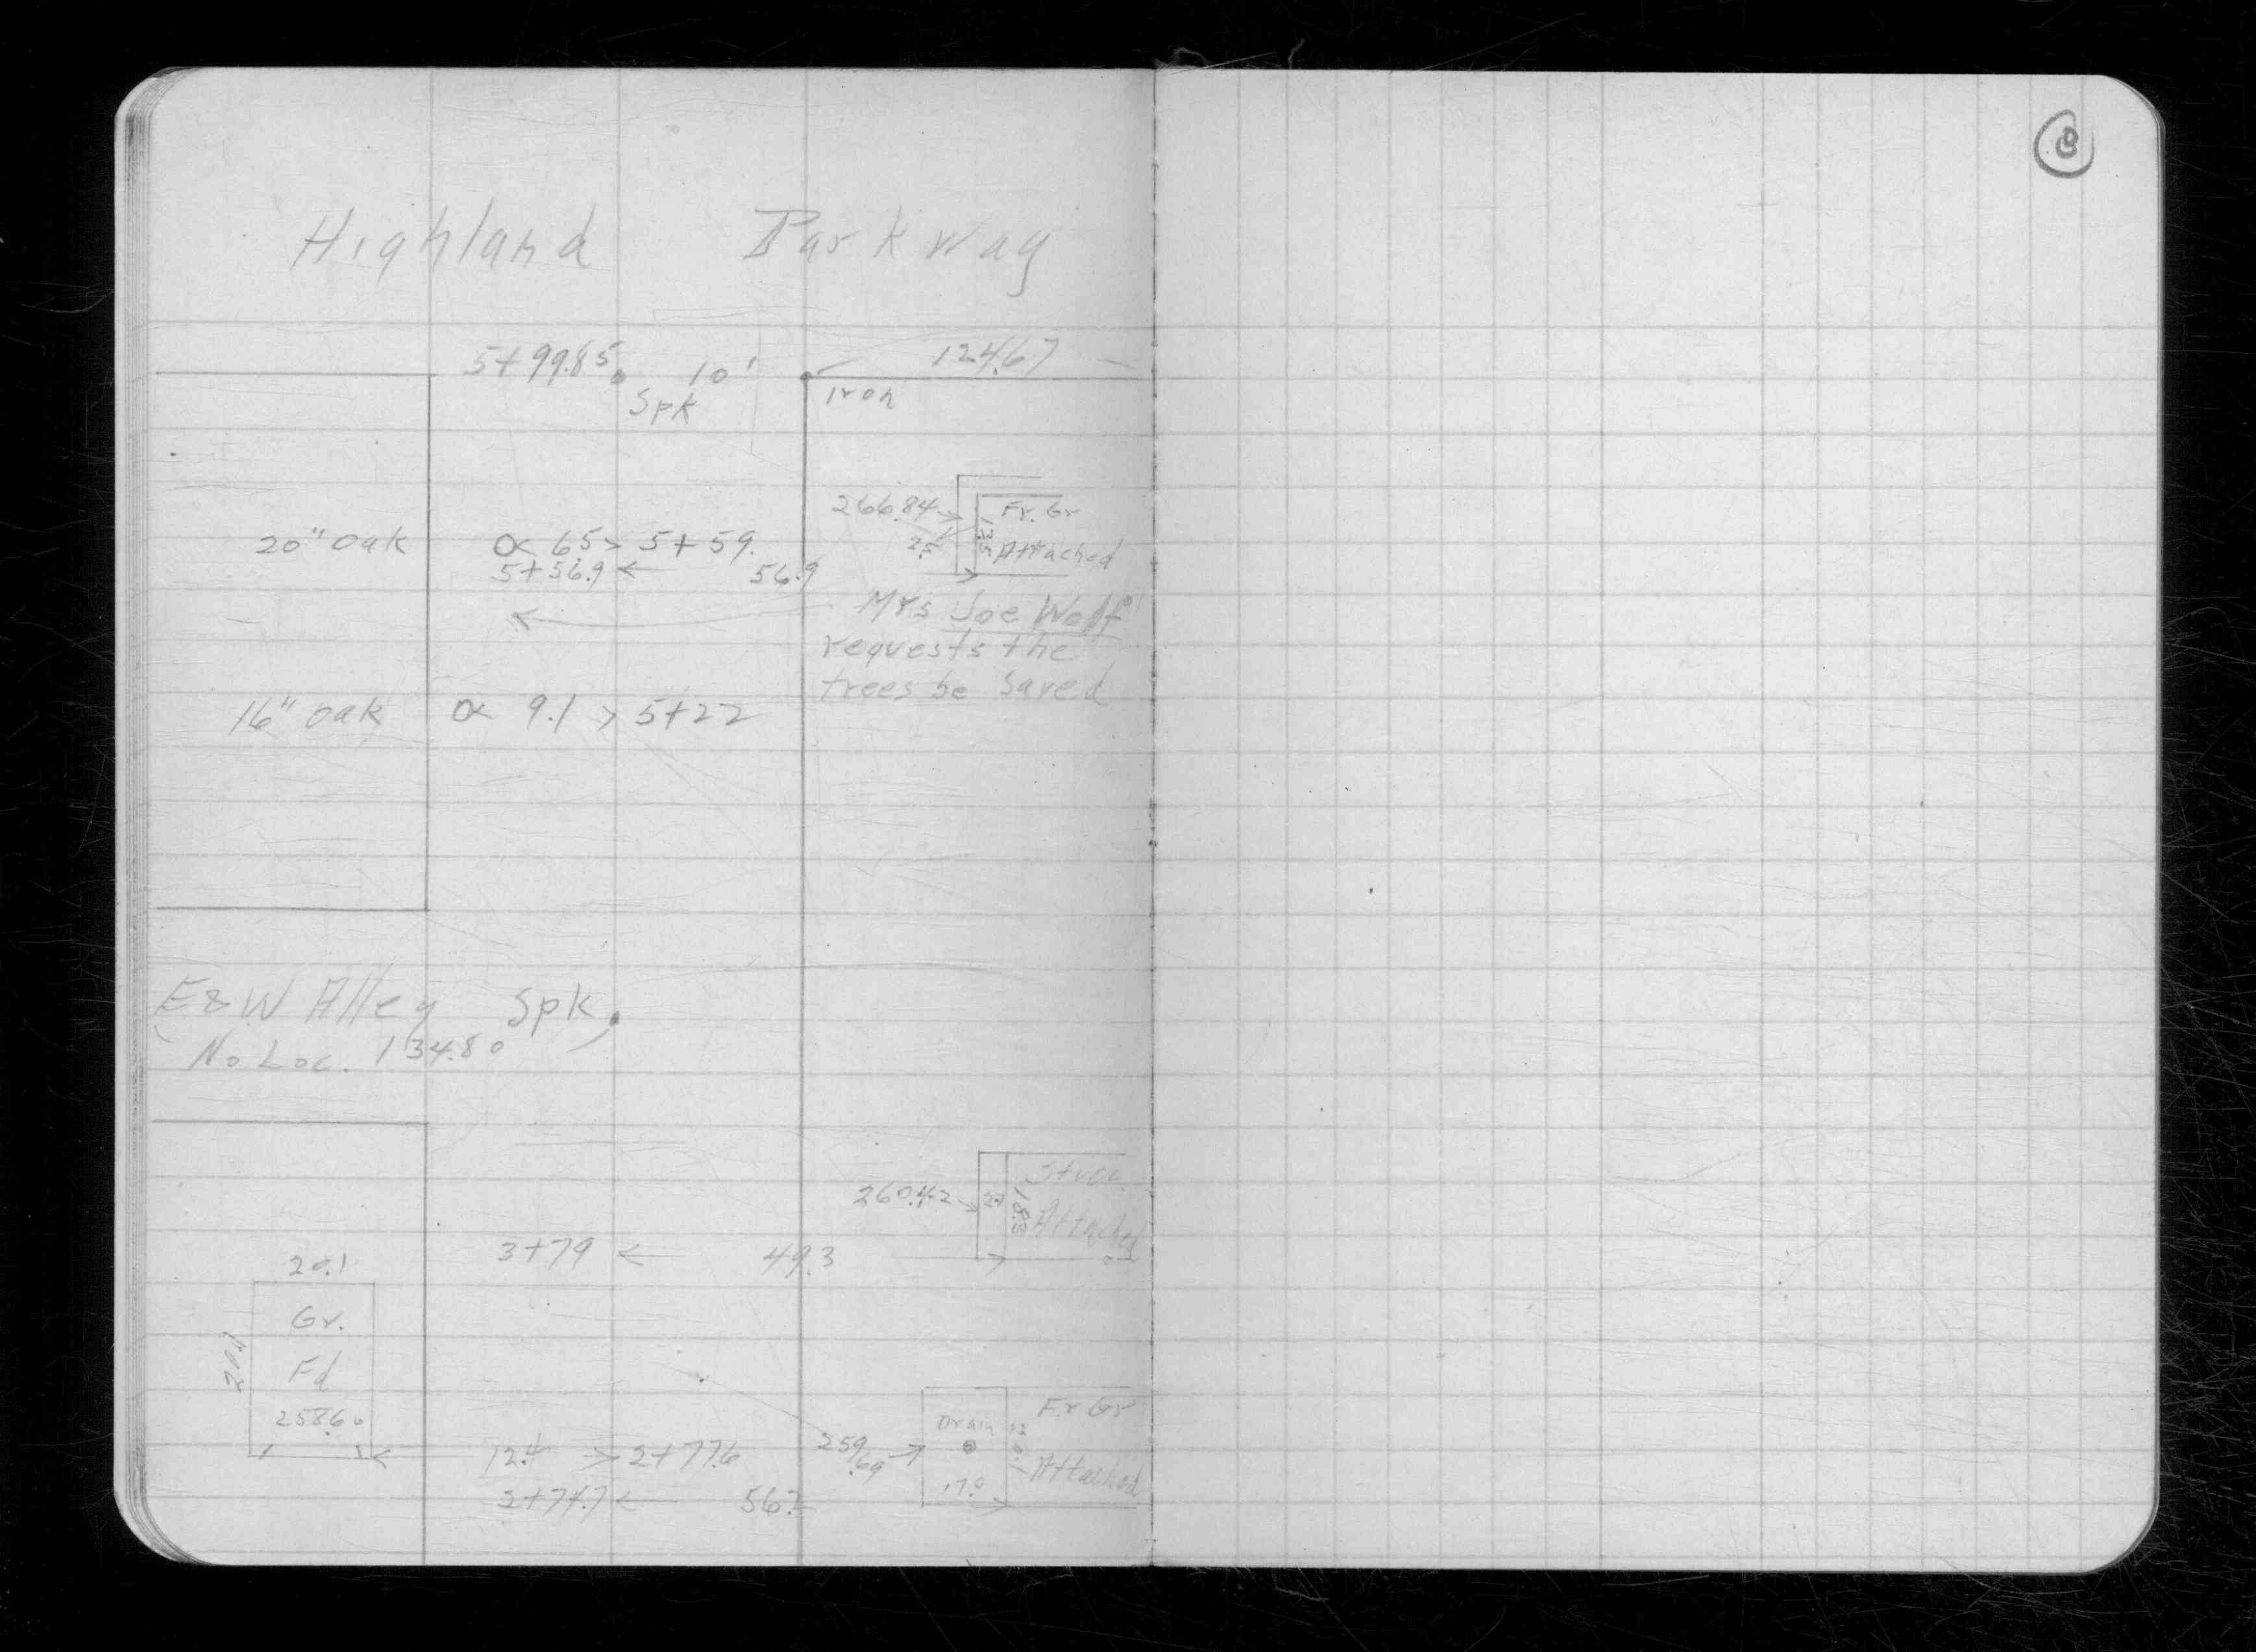 8
Highland Parkway
5+99.85 10' 124.67
Spk Iron
266.84 Fr. Gr
25 13.5 Attached
20" Oak α 6.5 > 5+59.
5+56.9 ← 56.9
Mrs Joe Wolf
requests the
trees be saved
16" Oak α 9.1 > 5+22
E&W Alley Spk
(No Loc. 134.80)
Struc.
260.42 → 27 18.3 Attached
3+79 ← 49.3
20.1
Gr.
Fd
258.60
Fr Gr
Drain
12.4 > 2+77.6 259.69 → Attached
17.0
2+74.7 ← 56.2